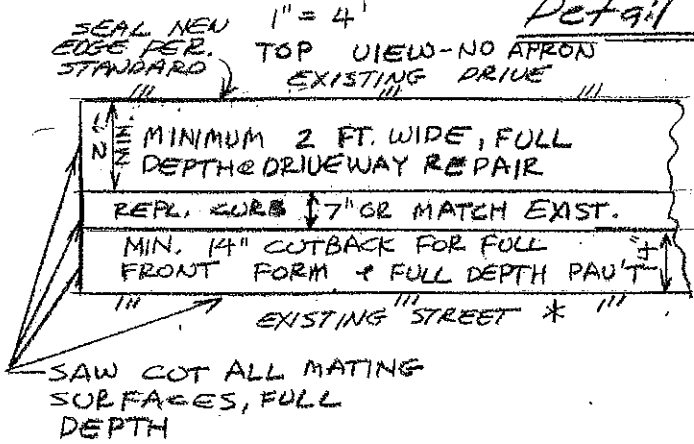 1" = 4'
Detail
SEAL NEW
EDGE PER.
STANDARD
TOP VIEW-NO APRON
EXISTING DRIVE
2'-
MIN.
MINIMUM 2 FT. WIDE, FULL
DEPTH@DRIVEWAY REPAIR
REPL. CURB 7" OR MATCH EXIST.
MIN. 14" CUTBACK FOR FULL
FRONT FORM & FULL DEPTH PAV'T
14"
EXISTING STREET *
SAW CUT ALL MATING
SURFACES, FULL
DEPTH